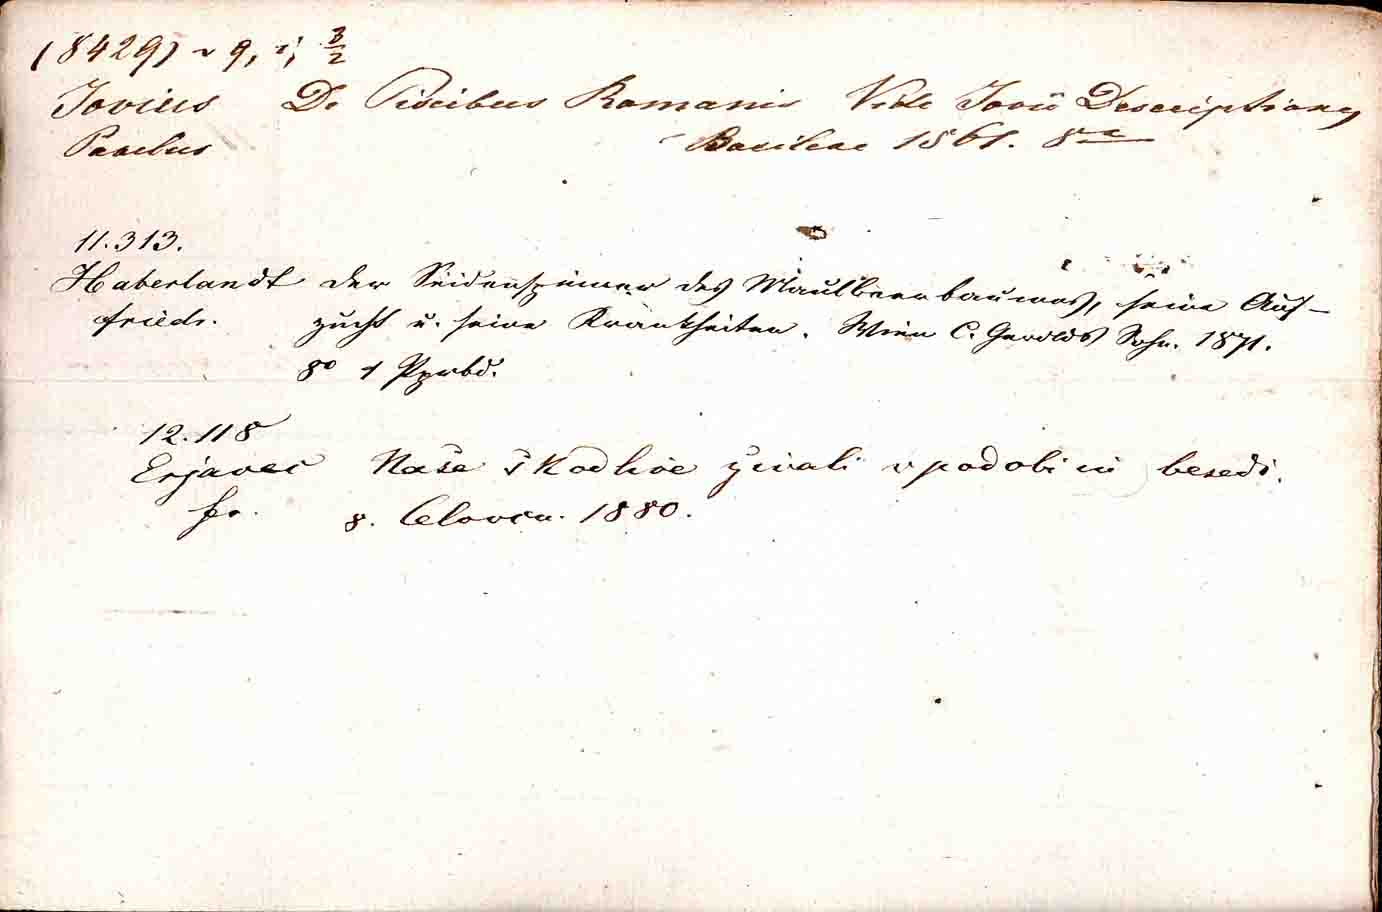 (8429) ~ 9, i, 3/2
Jovius De Piscibus Romanis Vide Jovii Descriptiones
Paulus Basileae 1561. 8vo
11.313.
Haberlandt der Seidenspinner des Maulbeerbaumes, seine Auf-
friedr. zucht u. seine Krankheiten. Wien C. Gerolds Sohn. 1871.
8o 1 Pprbd.
12.118
Erjavec Naše škodlive živali v podobi in besedi.
fr. 8. Celovcu. 1880.